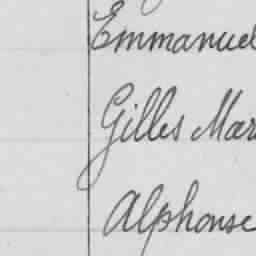 Emmanuel
Gilles Mar
Alphonse